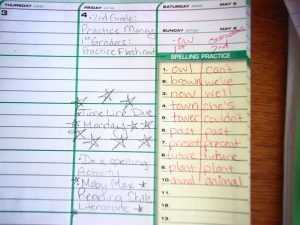 THURSDAY
FRIDAY
SATURDAY MAY 5
3
4
2nd Grade:
Practice Money
1st Graders:
Practice Flashcards
SUNDAY MAY 6
OW
1st
2nd
SPELLING PRACTICE
1. owl can't
2. brown we've
3. now well
4. town she's
5. tower couldn't
6. past past
7. present present
8. future future
9. plant plant
10. animal animal
11.
12.
13.
Time Line Due
Monday
Do a spelling
Activity!
Moby Max
Reading Skills
Literature